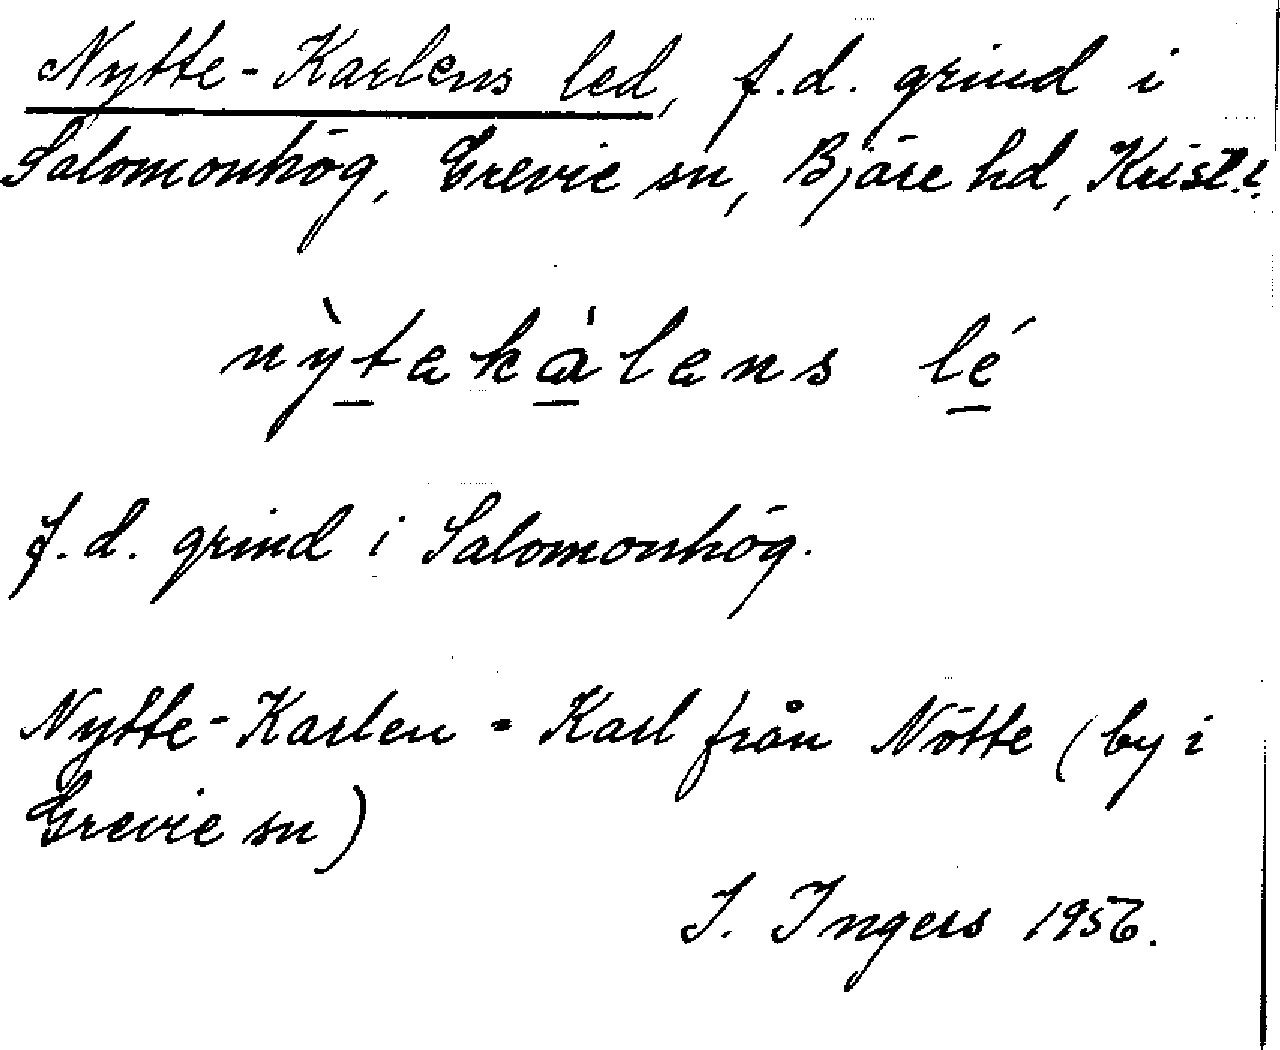 Nytte-Karlens led, f.d. grind i
Salomonhög, Grevie sn, Bjäre hd, Krist. l.
nỳtakàlans lé
f.d. grind i Salomonhög.
Nytte-Karlen = Karl från Nötte (by i
Grevie sn)
I. Ingers 1956.